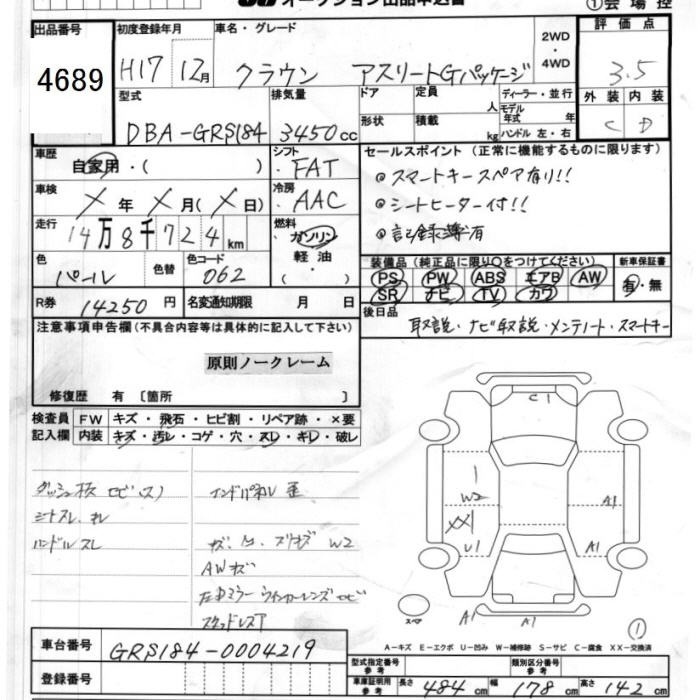 オークション出品申込書 ①会場控
出品番号 初度登録年月 車名・グレード 2WD・4WD 評価点
4689 H17 12月 クラウン アスリートGパッケージ 3.5
型式 排気量 ドア 定員 人 ディーラー・並行 外装 内装
DBA-GRS184 3450cc 形状 積載 kg モデル年式 年 ハンドル 左・右 C D
車歴 自家用・( ) シフト FAT セールスポイント (正常に機能するものに限ります)
車検 X年 X月(X日) 冷房 AAC ◎スマートキースペア有り!!
走行 14万8千724km 燃料 ガソリン 軽油・( ) ◎シートヒーター付!!
◎記録簿有
色 パール 色替 色コード 062 装備品(純正品に限り○をつけてください) 新車保証書
PS PW ABS エアB AW 有・無
SR ナビ TV カワ
R券 14250円 名変通知期限 月 日 後日品 取説・ナビ取説・メンテノート・スマートキー
注意事項申告欄(不具合内容等は具体的に記入して下さい)
原則ノークレーム
修復歴 有 [箇所 ]
検査員記入欄 FW キズ・飛石・ヒビ割・リペア跡・×要
内装 キズ・汚レ・コゲ・穴・スレ・キレ・破レ
C1
W2 A1
XX
U1 A1
スペア A1 A1 ①
ダッシュ板 セビ(ス) インドパネル 歪
シートスレ.キレ
ハンドルスレ W2
AWキズ
左ドアミラーウインカーレンズ
スタッドレスア
A-キズ E-エクボ U-凹み W-補修跡 S-サビ C-腐食 XX-交換済
車台番号 GRS184-0004219
型式指定番号 参考 類別区分番号 参考
登録番号 車庫証明用 参考 長さ 484cm 幅 178cm 高さ 142cm